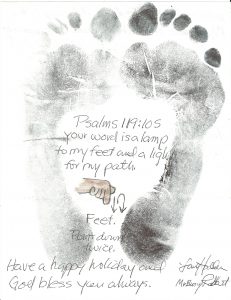 Psalms 119:105
your word is a lamp
to my feet and a light
for my path.
Feet.
down
twice.
Have a happy holiday and
God bless you always.